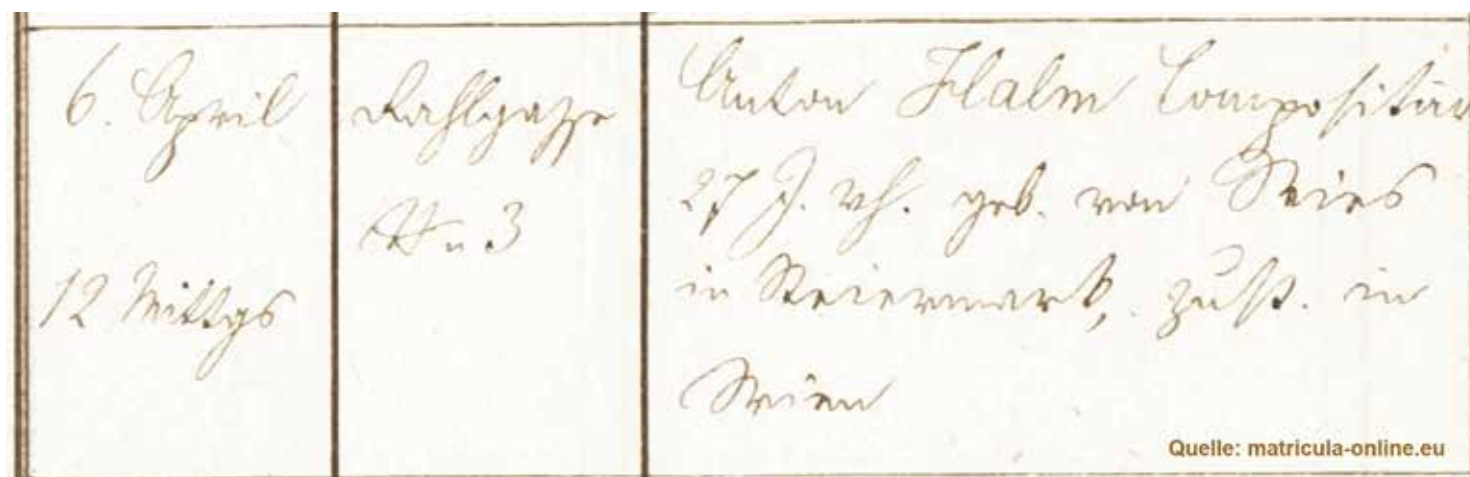 6. April
12 Mittgs
Rahlgasse
3
Anton Halm Compositür
J. vh. geb. von Wies
in Steiermark, zust. in
Wien
Quelle: matricula-online.eu